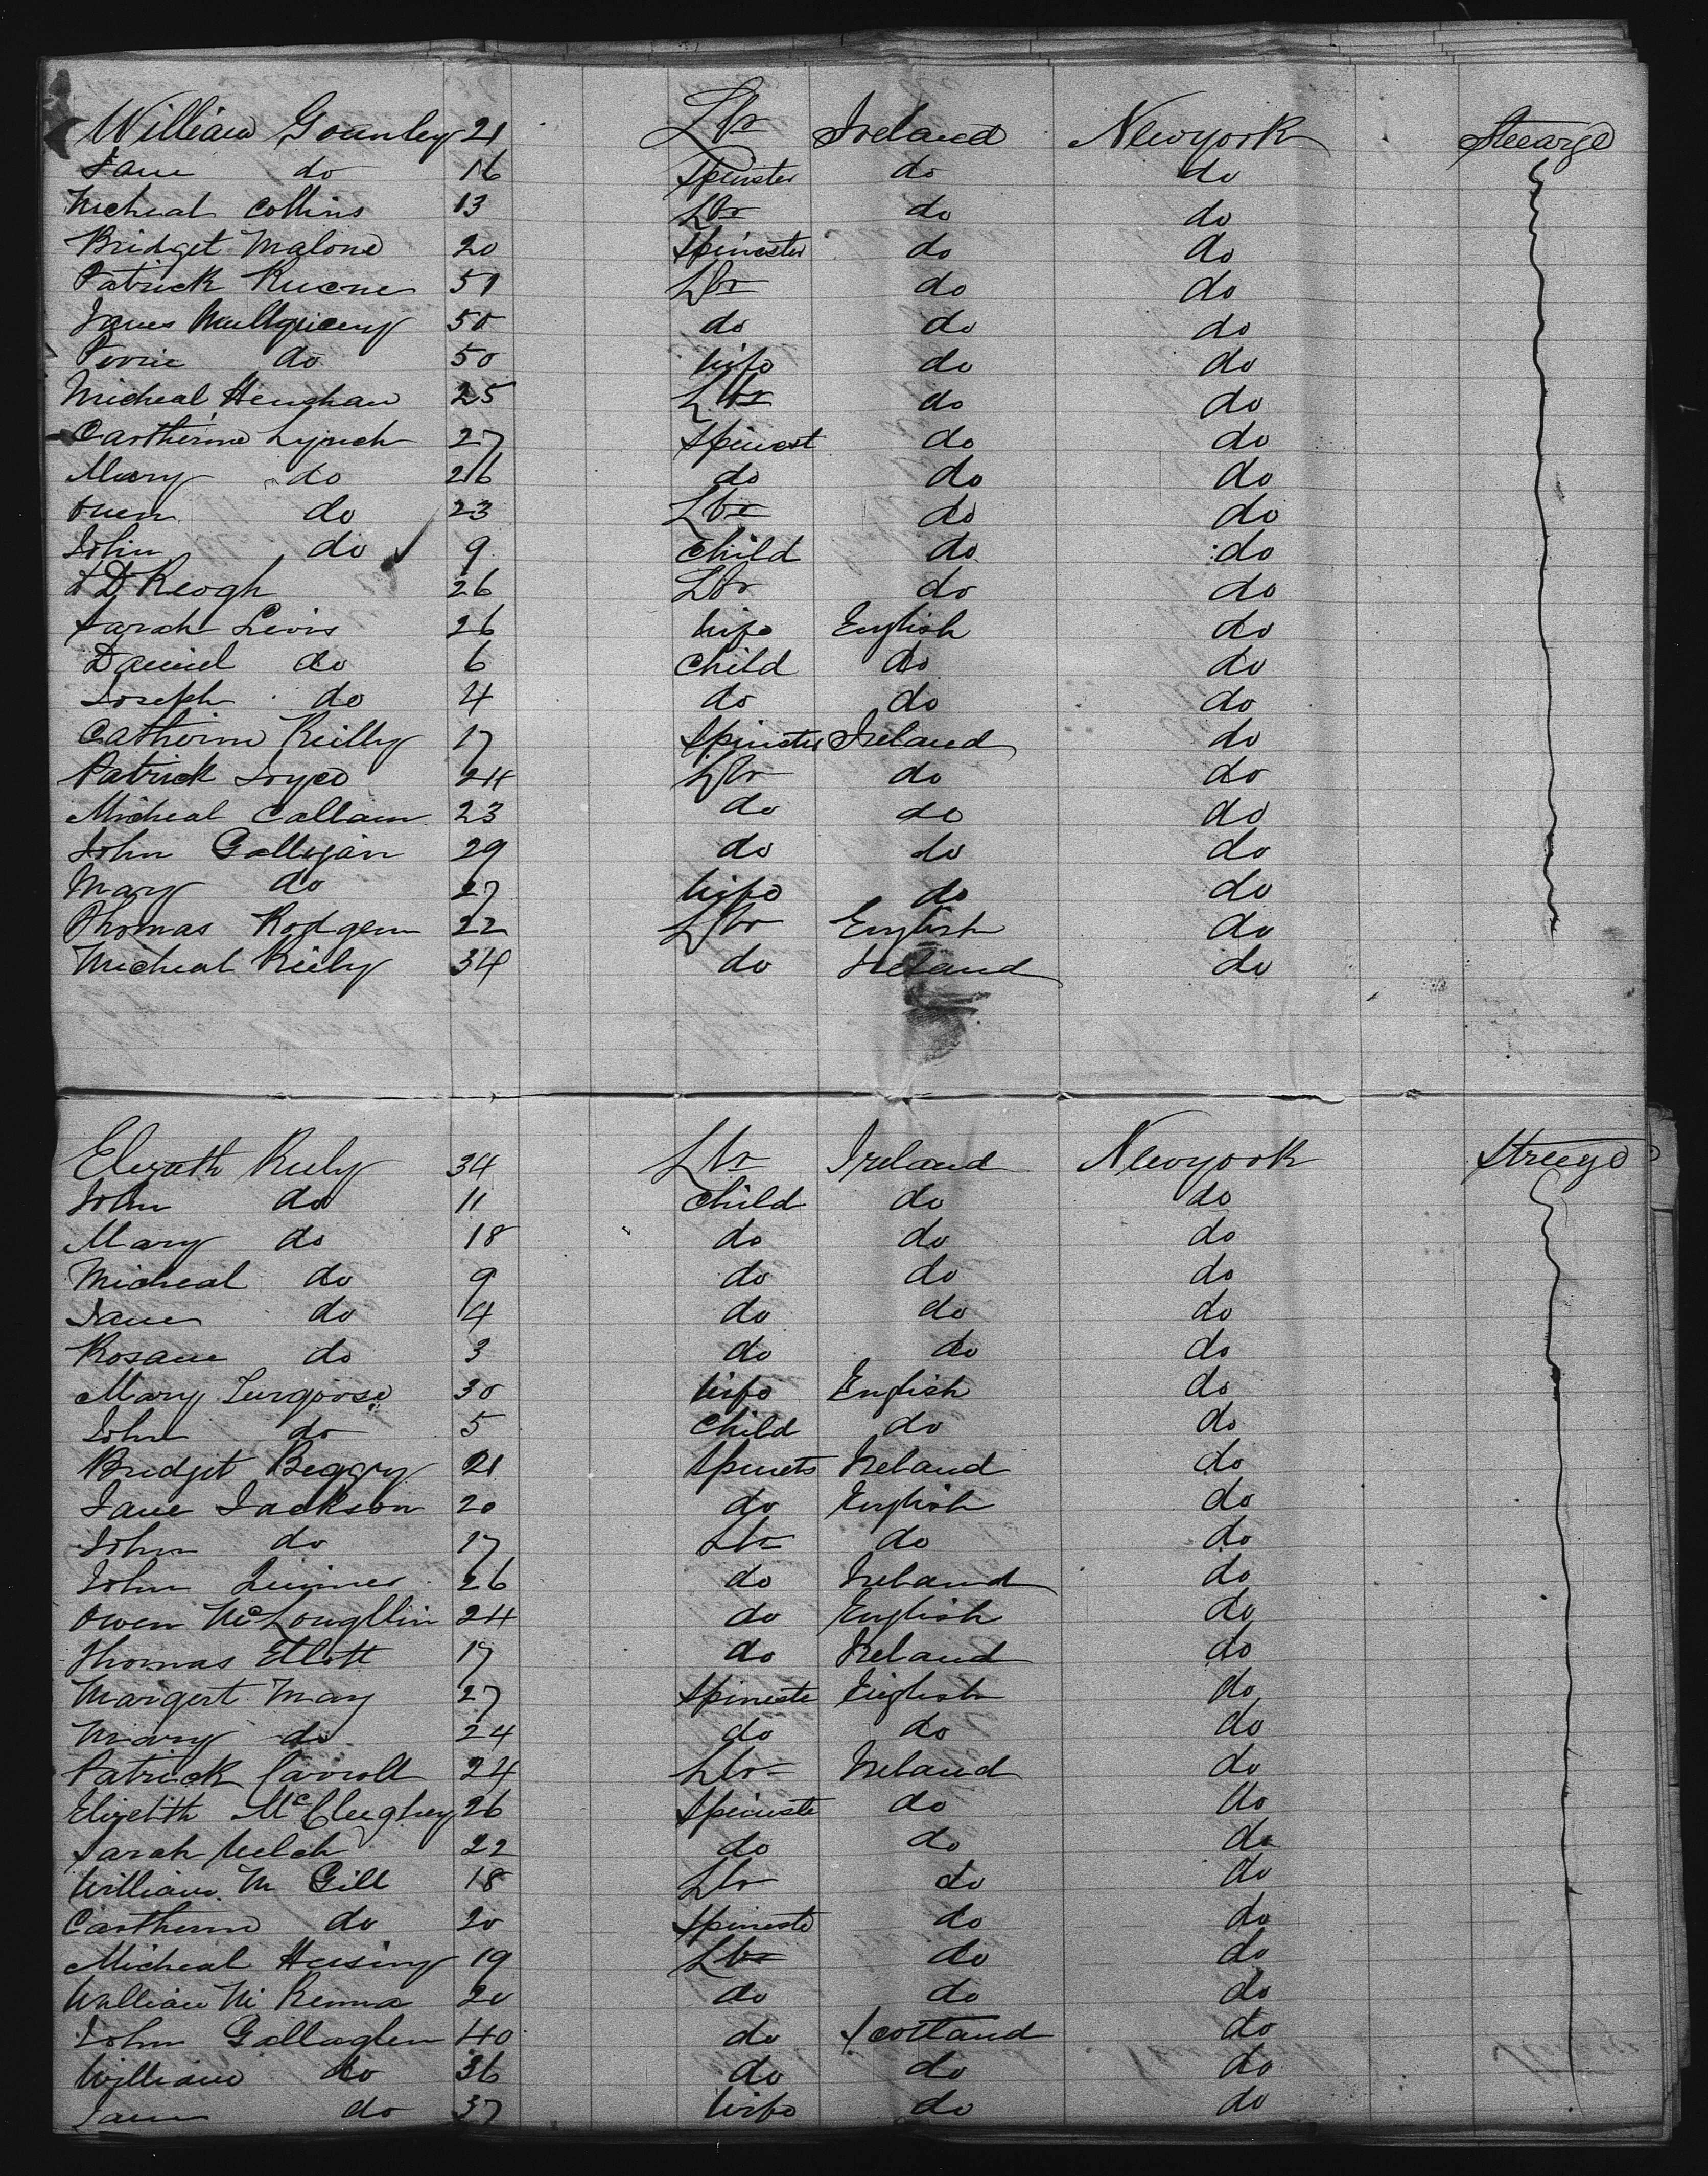 William Gounley 21 Lbr Ireland Newyork Steearge
Jane do 16 Spinster do do
Micheal Collins 13 Lbr do do
Bridget Malone 20 Spinester do do
Patrick 51 Lbr do do
James 50 do do do
do 50 Wife do do
Micheal Henghan 25 Lbr do do
Cartherine Lynch 27 Spinest do do
Mary do 26 do do do
Owen do 23 Lbr do do
John do 9 Child do do
Keogh 26 Lbr do do
Sarah Lewis 26 Wife English do
Daniel do 6 Child do do
Joseph do 4 do do do
Catherine Reilly 17 Spinster Ireland do
Patrick Joyce 24 Lbr do do
Micheal Callam 23 do do do
John Galligan 29 do do do
Mary do 27 Wife do do
Thomas Rodgers 22 Lbr English do
Micheal Riely 34 do Ireland do
Elizath Riely 34 Lbr Ireland Newyork
John do 11 Child do do
Mary do 18 do do do
Micheal do 9 do do do
Jane do 4 do do do
Rosane do 3 do do do
Mary 30 Wife English do
John do 5 Child do do
Bridget Beggy 21 Spinets Ireland do
Jane Jackson 20 do English do
John do 17 Lbr do do
John 26 do Ireland do
Owen McLoughlin 24 do English do
Thomas Ellott 17 do Ireland do
Margert May 27 Spineste English do
Mary do 24 do do do
Patrick Carroll 24 Lbr Ireland do
Elizebith McCleughey 26 Spineste do do
Sarah Welch 22 do do do
William M Gill 18 Lbr do do
Cartherine do 20 Spineste do do
Micheal 19 Lbr do do
William Mc Kenna 20 do do do
John Gallagher 40 do Scotland do
William do 36 do do do
Jane do 37 Wife do do